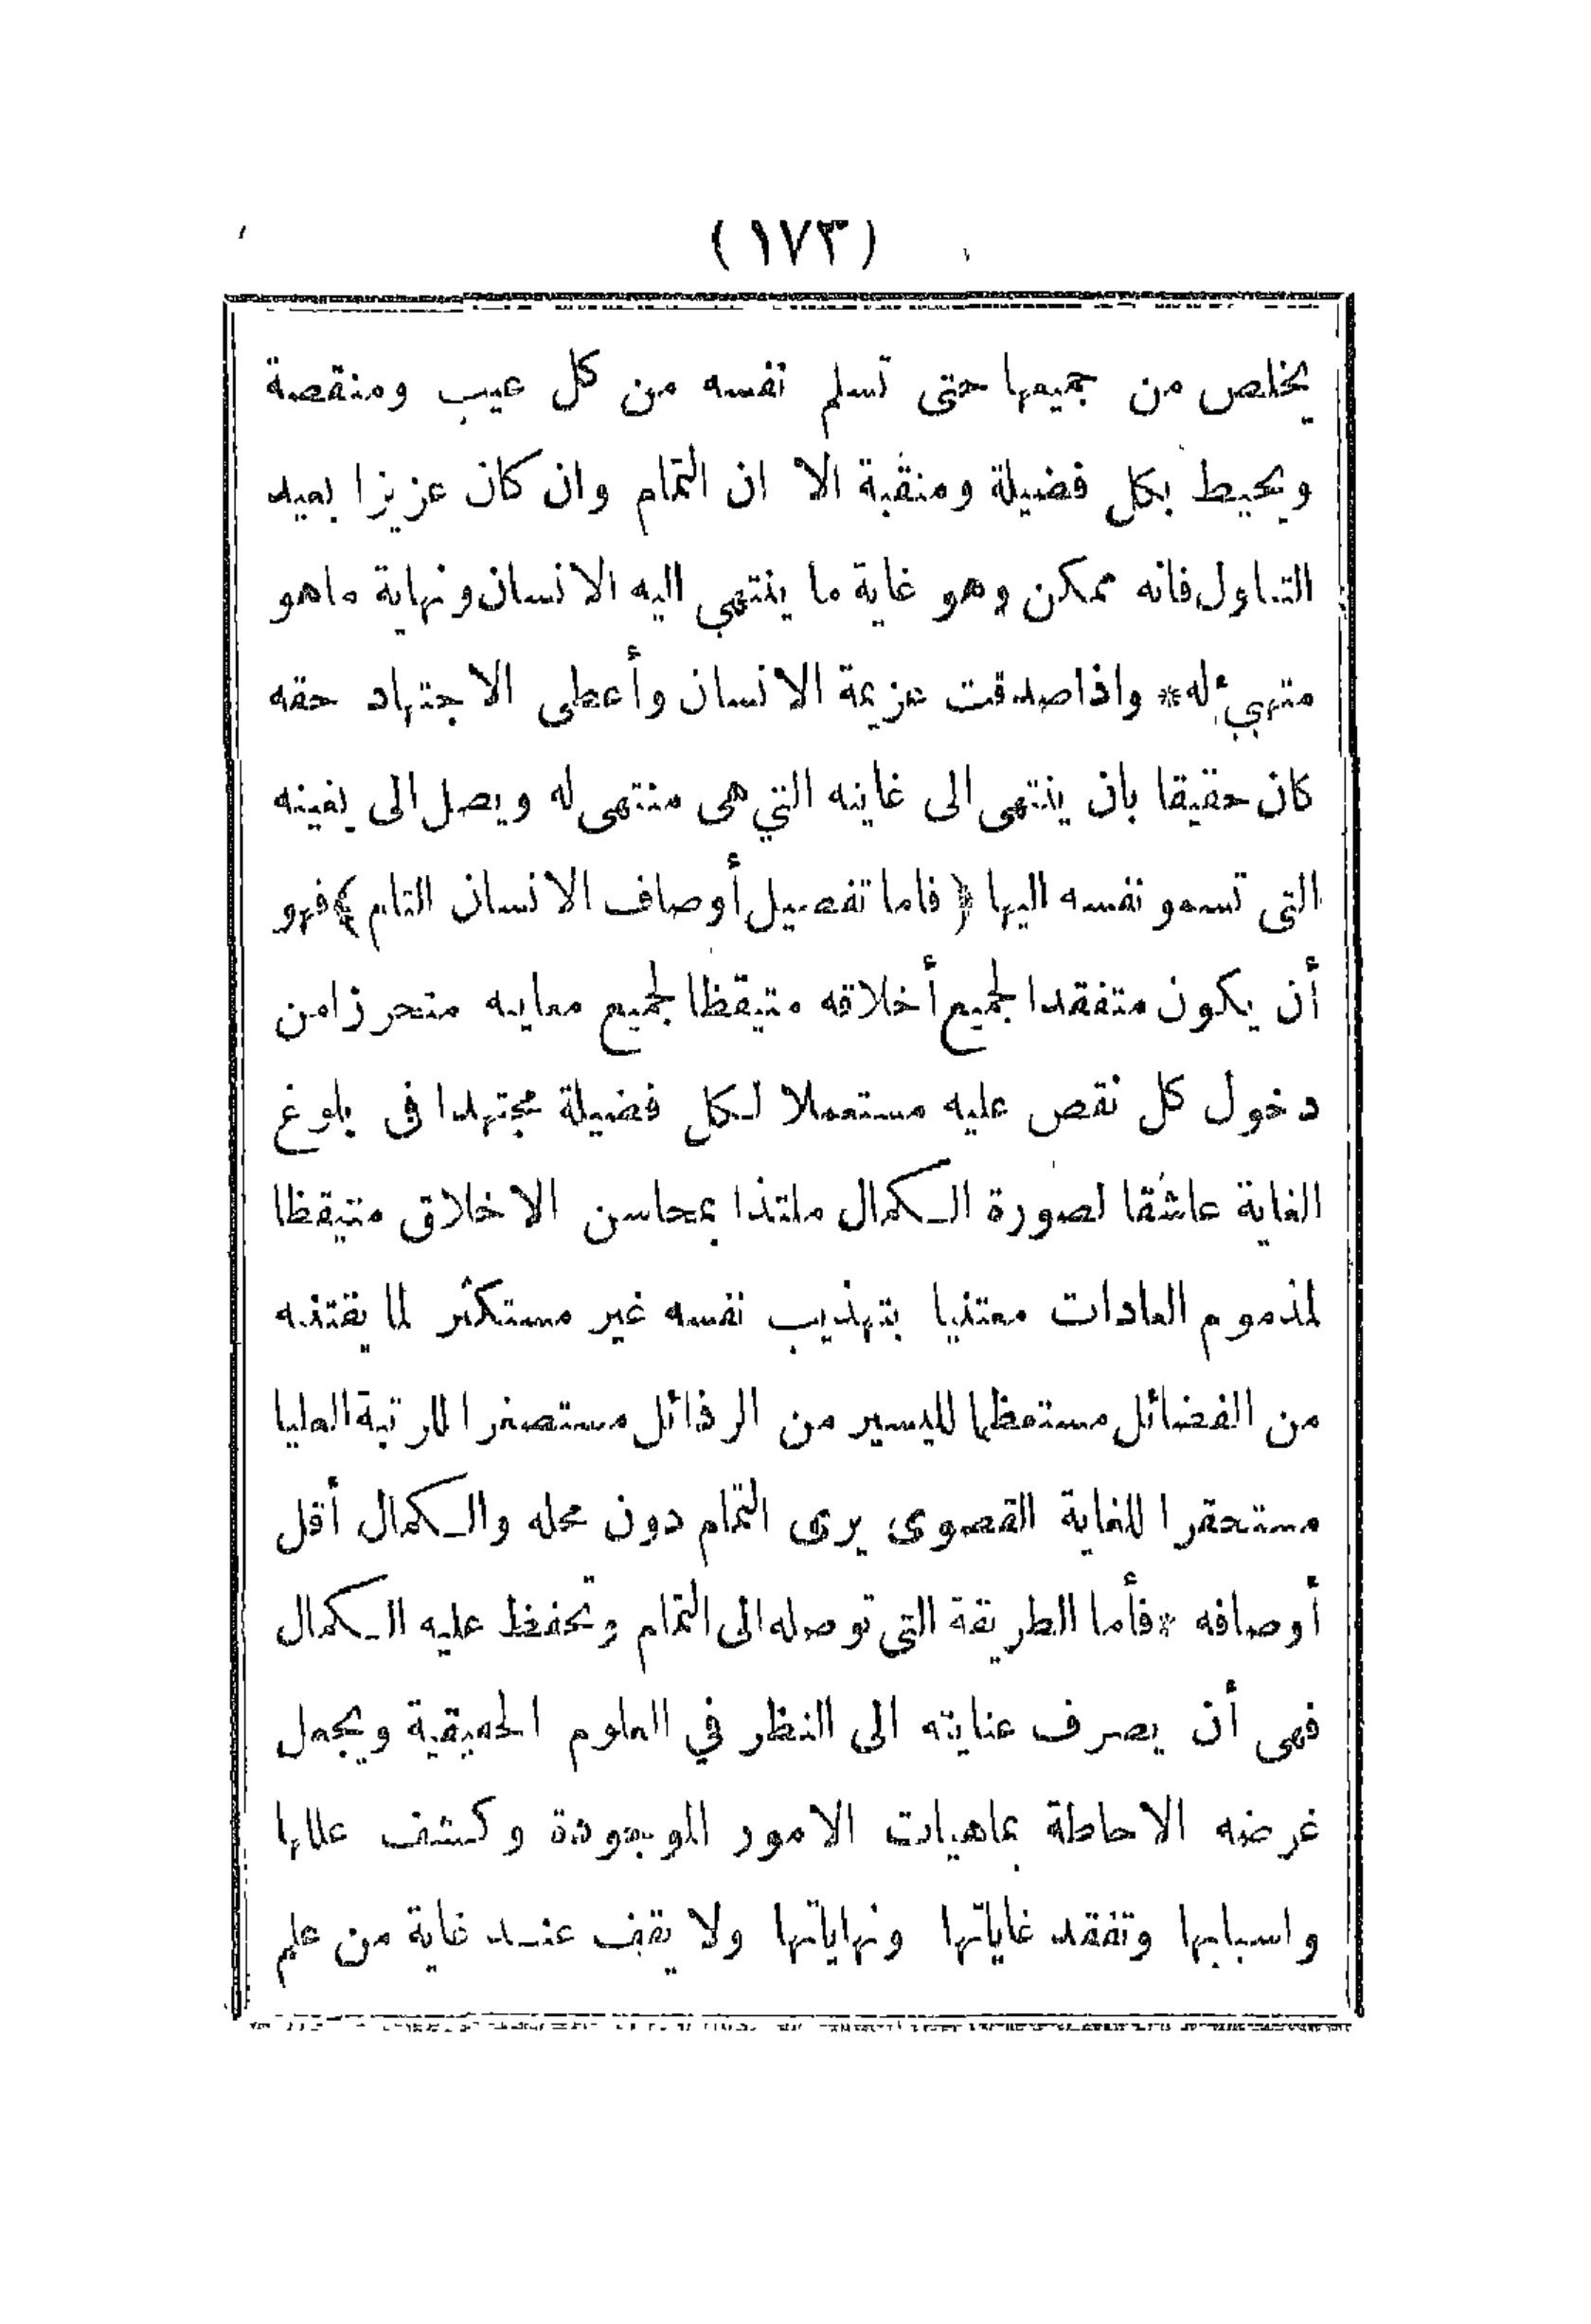 (١٧٣)
يخلص من جميعها حتى تسلم نفسه من كل عيب ومنقصة
ويحيط بكل فضيلة ومنقبة الا ان التمام وان كان عزيزا بعيد
التناول فانه ممكن وهو غاية ما ينتهي اليه الانسان ونهاية ماهو
متهيئ له * واذا صدقت عزيمة الانسان وأعطى الاجتهاد حقه
كان حقيقا بان ينتهى الى غايته التي هى منتهى له ويصل الى بغيته
التى تسمو نفسه اليها ﴿ فاما تفصيل أوصاف الانسان التام ﴾ فهو
أن يكون متفقدا لجميع أخلاقه متيقظا لجميع معايبه متحرزا من
دخول كل نقص عليه مستعملا لكل فضيلة مجتهدا فى بلوغ
الغاية عاشقا لصورة الكمال ملتذا بمحاسن الاخلاق متيقظا
لمذموم العادات معتنيا بتهذيب نفسه غير مستكثر لما يقتنيه
من الفضائل مستعظما لليسير من الرذائل مستصغرا للرتبة العليا
مستحقرا للغاية القصوى يرى التمام دون محله والكمال أقل
أوصافه * فأما الطريقة التى توصله الى التمام وتحفظ عليه الكمال
فهى أن يصرف عنايته الى النظر في العلوم الحقيقية ويجعل
غرضه الاحاطة بماهيات الامور الموجودة وكشف عللها
واسبابها وتفقد غاياتها ونهاياتها ولا يقف عند غاية من علم